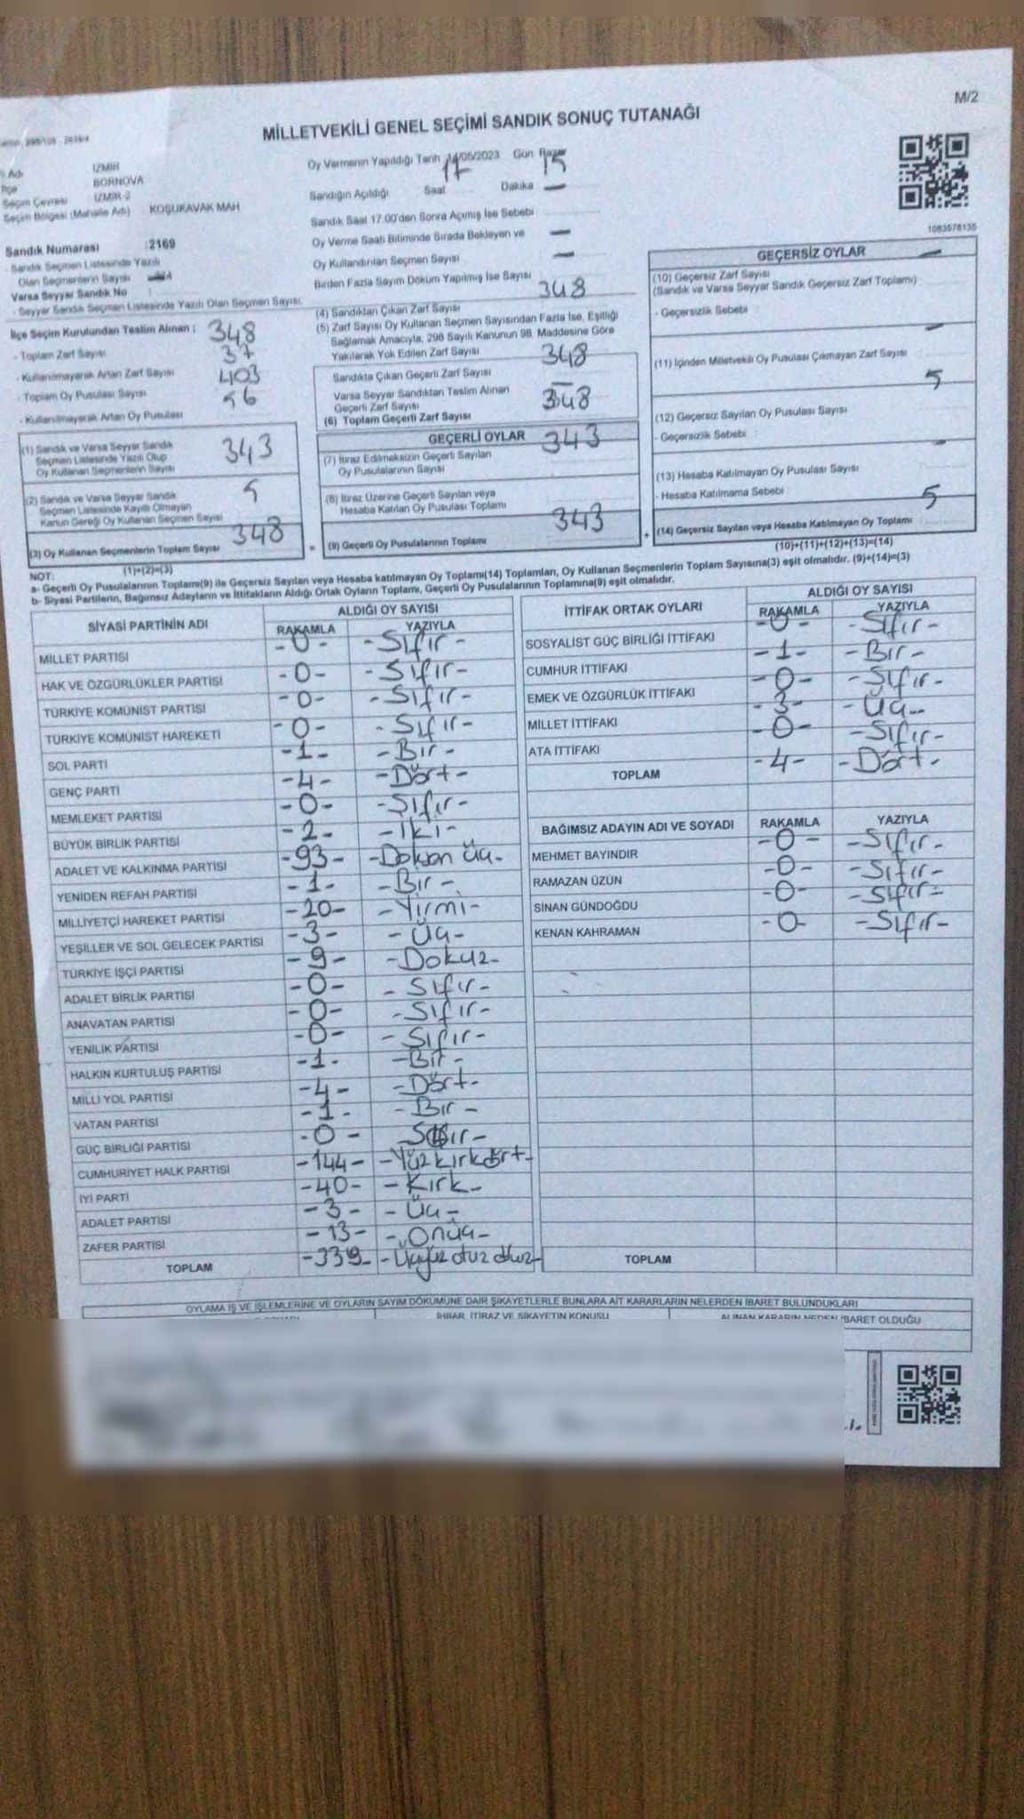 M/2
MİLLETVEKİLİ GENEL SEÇİMİ SANDIK SONUÇ TUTANAĞI
Adı İZMİR
İlçe BORNOVA
Seçim Çevresi İZMİR-2
Seçim Bölgesi (Mahalle Adı) KOŞUKAVAK MAH
Sandık Numarası :2169
- Sandık Seçmen Listesinde Yazılı
Olan Seçmenlerin Sayısı
Varsa Seyyar Sandık No
- Seyyar Sandık Seçmen Listesinde Yazılı Olan Seçmen Sayısı:
Oy Vermenin Yapıldığı Tarih 14/05/2023 Gün Pazar
Sandığın Açıldığı Saat 17 Dakika 15
Sandık Saat 17.00'den Sonra Açılmış İse Sebebi —
Oy Verme Saati Bitiminde Sırada Bekleyen ve —
Oy Kullandırılan Seçmen Sayısı —
Birden Fazla Sayım Döküm Yapılmış İse Sayısı —
1083578135
İlçe Seçim Kurulundan Teslim Alınan :
- Toplam Zarf Sayısı 348
- Kullanılmayarak Artan Zarf Sayısı 37
- Toplam Oy Pusulası Sayısı 403
- Kullanılmayarak Artan Oy Pusulası 56
(1) Sandık ve Varsa Seyyar Sandık
Seçmen Listesinde Yazılı Olup
Oy Kullanan Seçmenlerin Sayısı 343
(2) Sandık ve Varsa Seyyar Sandık
Seçmen Listesinde Kayıtlı Olmayan
Kanun Gereği Oy Kullanan Seçmen Sayısı 5
(3) Oy Kullanan Seçmenlerin Toplam Sayısı 348
(1)+(2)=(3)
(4) Sandıktan Çıkan Zarf Sayısı 348
(5) Zarf Sayısı Oy Kullanan Seçmen Sayısından Fazla İse, Eşitliği
Sağlamak Amacıyla, 298 Sayılı Kanunun 98. Maddesine Göre
Yakılarak Yok Edilen Zarf Sayısı
Sandıkta Çıkan Geçerli Zarf Sayısı 348
Varsa Seyyar Sandıktan Teslim Alınan
Geçerli Zarf Sayısı —
(6) Toplam Geçerli Zarf Sayısı 348
GEÇERLİ OYLAR
(7) İtiraz Edilmeksizin Geçerli Sayılan
Oy Pusulalarının Sayısı 343
(8) İtiraz Üzerine Geçerli Sayılan veya
Hesaba Katılan Oy Pusulası Toplamı
= (9) Geçerli Oy Pusulalarının Toplamı 343
GEÇERSİZ OYLAR
(10) Geçersiz Zarf Sayısı —
(Sandık ve Varsa Seyyar Sandık Geçersiz Zarf Toplamı)
- Geçersizlik Sebebi :
(11) İçinden Milletvekili Oy Pusulası Çıkmayan Zarf Sayısı —
(12) Geçersiz Sayılan Oy Pusulası Sayısı 5
- Geçersizlik Sebebi :
(13) Hesaba Katılmayan Oy Pusulası Sayısı —
- Hesaba Katılmama Sebebi :
+ (14) Geçersiz Sayılan veya Hesaba Katılmayan Oy Toplamı 5
(10)+(11)+(12)+(13)=(14)
NOT:
a- Geçerli Oy Pusulalarının Toplamı(9) ile Geçersiz Sayılan veya Hesaba katılmayan Oy Toplamı(14) Toplamları, Oy Kullanan Seçmenlerin Toplam Sayısına(3) eşit olmalıdır. (9)+(14)=(3)
b- Siyasi Partilerin, Bağımsız Adayların ve İttifakların Aldığı Ortak Oyların Toplamı, Geçerli Oy Pusulalarının Toplamına(9) eşit olmalıdır.
SİYASİ PARTİNİN ADI ALDIĞI OY SAYISI
RAKAMLA YAZIYLA
MİLLET PARTİSİ -0- -Sıfır-
HAK VE ÖZGÜRLÜKLER PARTİSİ -0- -Sıfır-
TÜRKİYE KOMÜNİST PARTİSİ -0- -Sıfır-
TÜRKİYE KOMÜNİST HAREKETİ -0- -Sıfır-
SOL PARTİ -1- -Bir-
GENÇ PARTİ -4- -Dört-
MEMLEKET PARTİSİ -0- -Sıfır-
BÜYÜK BİRLİK PARTİSİ -2- -İki-
ADALET VE KALKINMA PARTİSİ -93- -Doksan üç-
YENİDEN REFAH PARTİSİ -1- -Bir-
MİLLİYETÇİ HAREKET PARTİSİ -20- -Yirmi-
YEŞİLLER VE SOL GELECEK PARTİSİ -3- -Üç-
TÜRKİYE İŞÇİ PARTİSİ -9- -Dokuz-
ADALET BİRLİK PARTİSİ -0- -Sıfır-
ANAVATAN PARTİSİ -0- -Sıfır-
YENİLİK PARTİSİ -0- -Sıfır-
HALKIN KURTULUŞ PARTİSİ -1- -Bir-
MİLLİ YOL PARTİSİ -4- -Dört-
VATAN PARTİSİ -1- -Bir-
GÜÇ BİRLİĞİ PARTİSİ -0- Sıfır-
CUMHURİYET HALK PARTİSİ -144- -Yüzkırkdört-
İYİ PARTİ -40- -Kırk-
ADALET PARTİSİ -3- -Üç-
ZAFER PARTİSİ -13- -Onüç-
TOPLAM -339- -Üçyüz otuz dokuz-
İTTİFAK ORTAK OYLARI ALDIĞI OY SAYISI
RAKAMLA YAZIYLA
SOSYALİST GÜÇ BİRLİĞİ İTTİFAKI -0- -Sıfır-
CUMHUR İTTİFAKI -1- -Bir-
EMEK VE ÖZGÜRLÜK İTTİFAKI -0- -Sıfır-
MİLLET İTTİFAKI -3- -Üç-
ATA İTTİFAKI -0- -Sıfır-
TOPLAM -4- -Dört-
BAĞIMSIZ ADAYIN ADI VE SOYADI RAKAMLA YAZIYLA
MEHMET BAYINDIR -0- -Sıfır-
RAMAZAN ÜZÜN -0- -Sıfır-
SİNAN GÜNDOĞDU -0- -Sıfır-
KENAN KAHRAMAN -0- -Sıfır-
TOPLAM
OYLAMA İŞ VE İŞLEMLERİNE VE OYLARIN SAYIM DÖKÜMÜNE DAİR ŞİKAYETLERLE BUNLARA AİT KARARLARIN NELERDEN İBARET BULUNDUKLARI
İHBAR, İTİRAZ VE ŞİKAYETİN KONUSU
ALINAN KARARIN NEDEN İBARET OLDUĞU